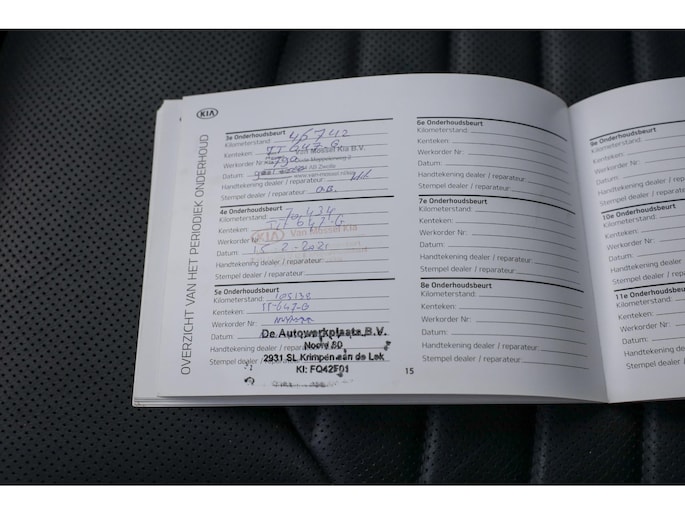 KIA
OVERZICHT VAN HET PERIODIEK ONDERHOUD
3e Onderhoudsbeurt
Kilometerstand: 46742
Kenteken: TT-647-G
Werkorder Nr:
Van Mossel Kia B.V.
Datum:
www.van-mossel.nl
Handtekening dealer / reparateur:
Stempel dealer / reparateur:
4e Onderhoudsbeurt
Kilometerstand:
Kenteken: TT-647-G
KIA Van Mossel Kia
Werkorder Nr:
Datum: 15-2-2021
Handtekening dealer / reparateur:
Stempel dealer / reparateur:
5e Onderhoudsbeurt
Kilometerstand: 105138
Kenteken: TT-647-G
Werkorder Nr:
De Autowerkplaats B.V.
Datum:
Noord 80
Handtekening dealer / reparateur:
2931 SL Krimpen aan de Lek
Stempel dealer / reparateur:
KI: FQ42F01
6e Onderhoudsbeurt
Kilometerstand:
Kenteken:
Werkorder Nr:
Datum:
Handtekening dealer / reparateur:
Stempel dealer / reparateur:
7e Onderhoudsbeurt
Kilometerstand:
Kenteken:
Werkorder Nr:
Datum:
Handtekening dealer / reparateur:
Stempel dealer / reparateur:
8e Onderhoudsbeurt
Kilometerstand:
Kenteken:
Werkorder Nr:
Datum:
Handtekening dealer / reparateur:
Stempel dealer / reparateur:
15
9e Onderhoudsbeurt
Kilometerstand:
Kenteken:
Werkorder Nr:
Datum:
Handtekening dealer / repa
Stempel dealer / reparate
10e Onderhoudsbeurt
Kilometerstand:
Kenteken:
Werkorder Nr:
Datum:
Handtekening dealer / re
Stempel dealer / repara
11e Onderhoudsbeurt
Kilometerstand:
Kenteken:
Werkorder Nr:
Datum:
Handtekening dealer /
Stempel dealer / repa